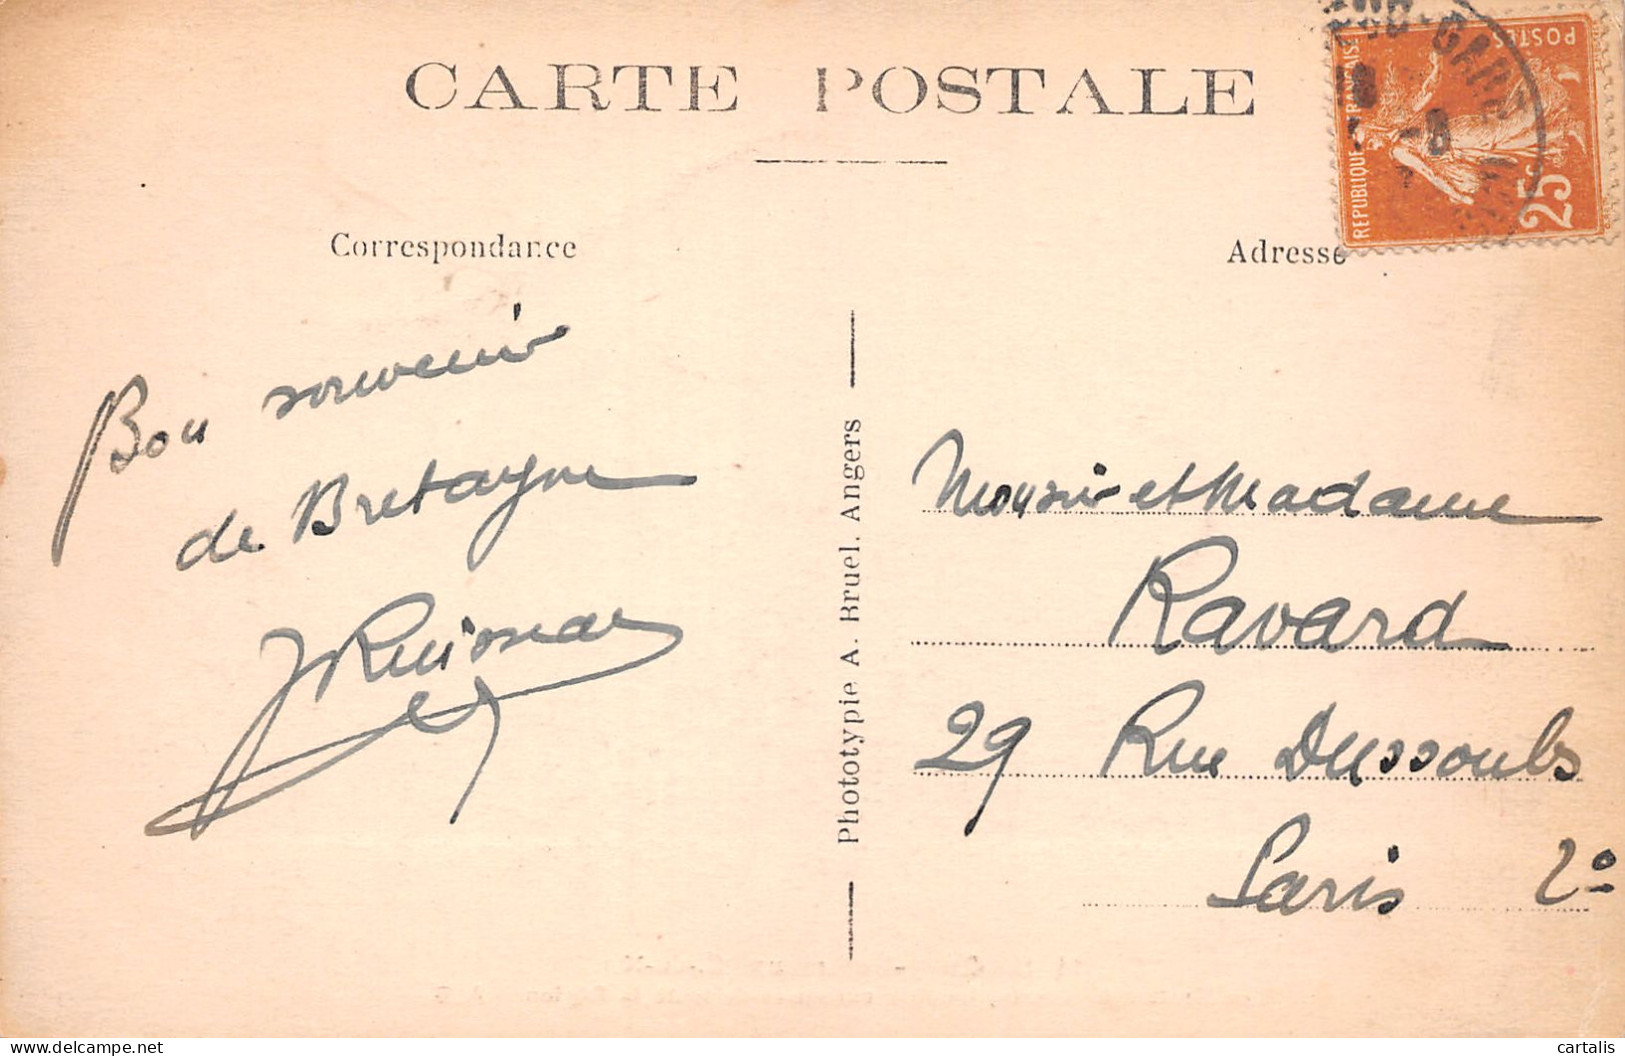 CARTE POSTALE
Correspondance
Adresse
REPUBLIQUE FRANÇAISE
POSTES
25c
GARE
18
-8
Bon souvenir
de Bretagne
Monsieur et Madame
Ravard
29 Rue Dussoubs
Paris 2°
Phototypie A. Bruel, Angers
cartalis
delcampe.net